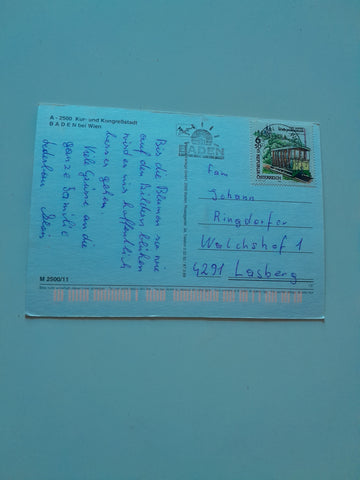 A - 2500 Kur- und Kongreßstadt
BADEN bei Wien
Bis die Blumen so wie
auf den Bildern blühen
wird es mir hoffentlich
besser gehen.
Viele Grüsse an die
ganze Familie
BADEN
REPUBLIK
ÖSTERREICH
Fam
Johann
Ringdorfer
Walchshof 1
4291 Lasberg
M 2500/11